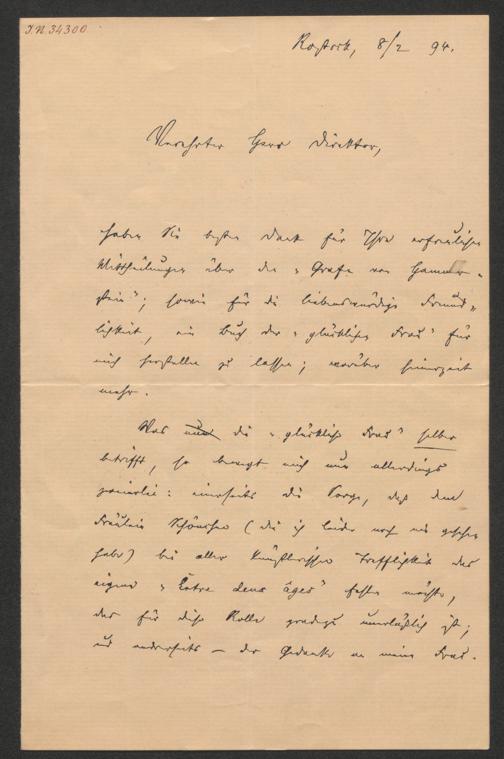 J.N. 34300
Rostock, 8/2 94.
Verehrter Herr Direktor,
haben Sie besten Dank für Ihre erfreulichen
Mittheilungen über den „Grafen von Hammer=
stein“; sowie für die liebenswürdige Freund=
lichkeit, ein Buch der „glücklichen Frau“ für
mich herstellen zu lassen; worüber seinerzeit
mehr.
Was nun die „glückliche Frau“ selber
betrifft, so bewegt mich nun allerdings
zweierlei: einerseits die Sorge, daß dem
Fräulein Schönchen (die ich leider noch nie gesehen
habe) bei aller künstlerischen Trefflichkeit das
eigene „Entre deux âges“ fehlen möchte,
das für diese Rolle geradezu unerläßlich ist;
und anderseits – der Gedanke an meine Frau.